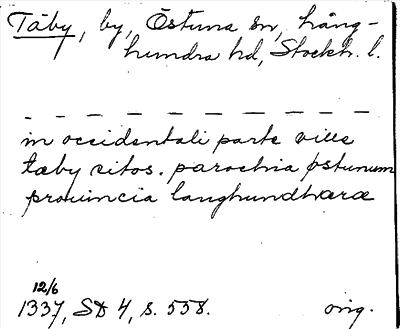 Täby, by, Östuna sn, Lång-
hundra hd, Stockh. l.
_ _ _ _ _ _ _ _ _ _ _
in occidentali parte ville
tæby sitos. parochia østunum
prouincia langhundhæræ
12/6
1337, SD 4, s. 558. orig.